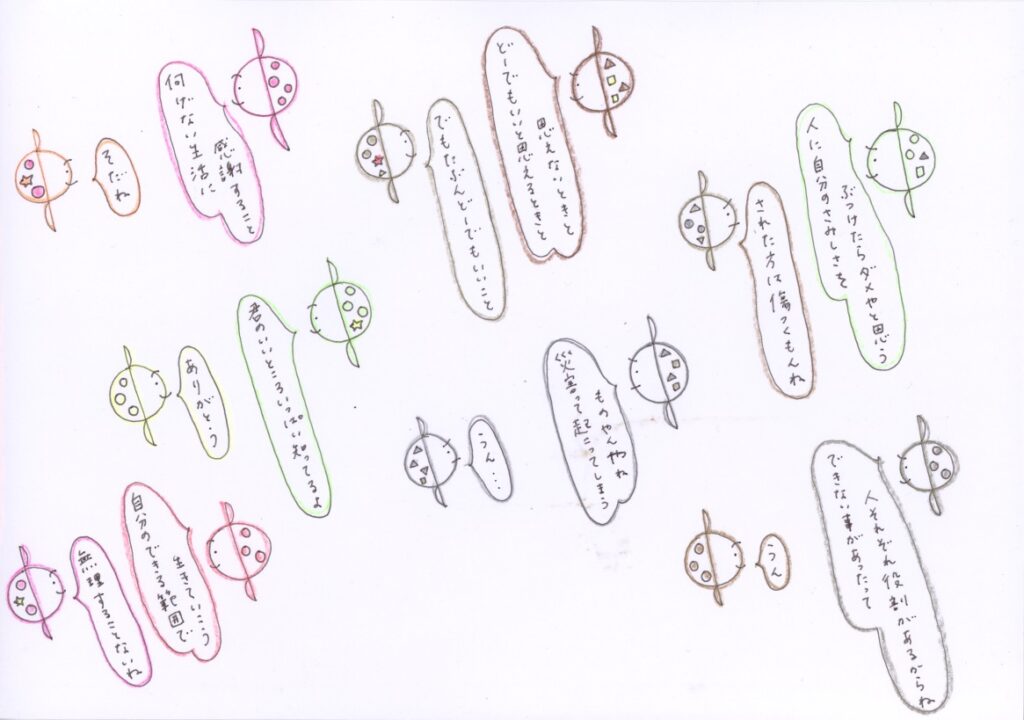 何げない生活に
感謝すること
そだね
どーでもいいと思えるときと
思えないときと
でもたぶんどーでもいいこと
人に自分のさみしさを
ぶつけたらダメやと思う
された方は傷つくもんね
君のいいところいっぱい知ってるよ
ありがとう
災害って起こってしまう
ものやんやね
うん…
自分のできる範囲で
生きていこう
無理することないね
できない事があったって
人それぞれ役割があるからね
うん